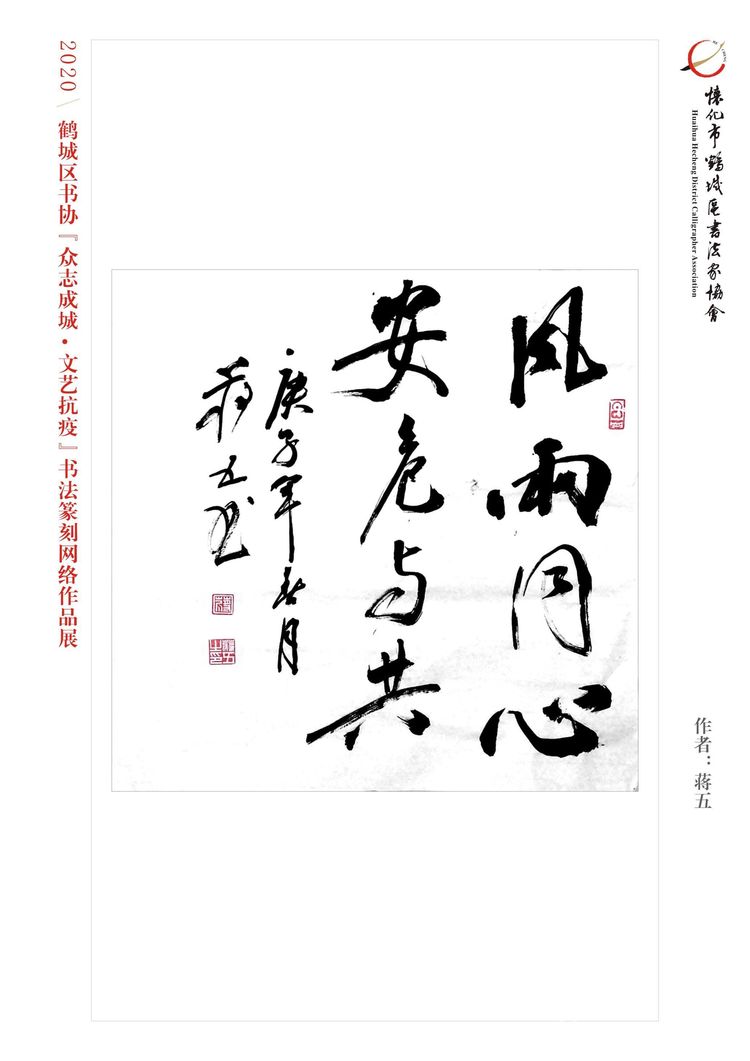 2020
鹤城区书协『众志成城·文艺抗疫』书法篆刻网络作品展
懷化市鶴城區書法家協會
Huaihua Hecheng District Calligrapher Association
風雨同心
安危与共
庚子年春月
蒋五书
作者：蒋五